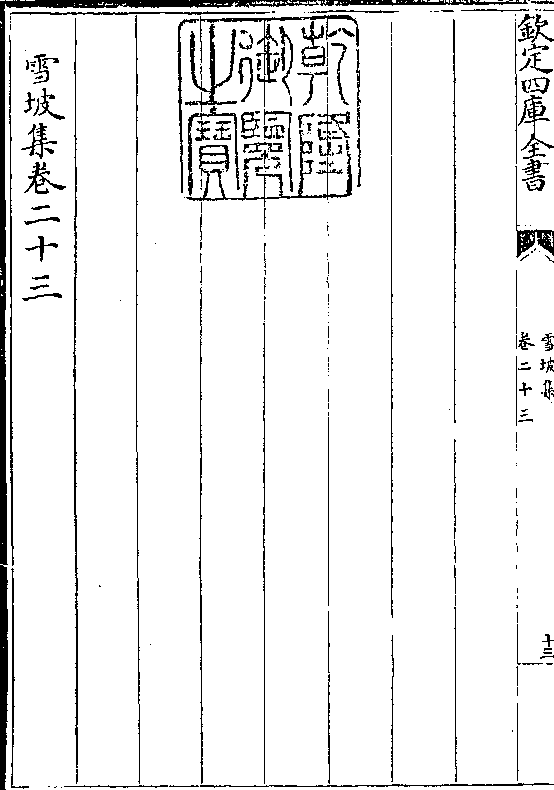 欽定四庫全書
雪坡集
卷二十三
十三
乾隆御覽之寶
雪坡集卷二十三